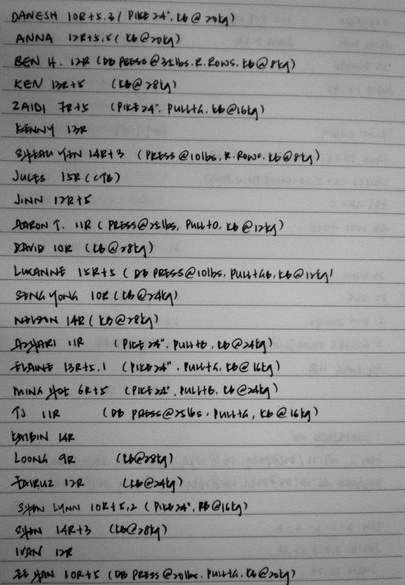 DANESH 10R+5.2 (PIKE 24", KB@20kg)
ANNA 12R+5.5 (KB@20kg)
BEN H. 12R (DB PRESS@35lbs, R.ROWS, KB@8kg)
KEN 13R+5 (KB@28kg)
ZAIDI 7R+5 (PIKE 24", PULL+G, KB@16kg)
KENNY 13R
SHEAU YEN 14R+3 (PRESS@10lbs, R.ROWS, KB@8kg)
JULES 15R (CTB)
JINN 17R+5
AARON T. 11R (PRESS@25lbs, PULL+O, KB@12kg)
DAVID 10R (KB@28kg)
LUCANNE 15R+5 (DB PRESS@10lbs, PULL+GB, KB@12kg)
SENG YONG 10R (KB@24kg)
NELSON 14R (KB@28kg)
AZHARI 11R (PIKE 24", PULL+B, KB@24kg)
ELAINE 13R+5.1 (PIKE 24", PULL+G, KB@16kg)
MING HOE 6R+5 (PIKE 24", PULL+B, KB@24kg)
TJ 11R (DB PRESS@25lbs, PULL+G, KB@16kg)
KAIBIN 14R
LOONG 9R (KB@28kg)
FAIRUZ 12R (KB@24kg)
SHAN LYNN 10R+5.2 (PIKE 24", KB@16kg)
SHAN 14R+3 (KB@28kg)
IVAN 12R
EE YAN 10R+5 (DB PRESS@20lbs, PULL+G, KB@20kg)